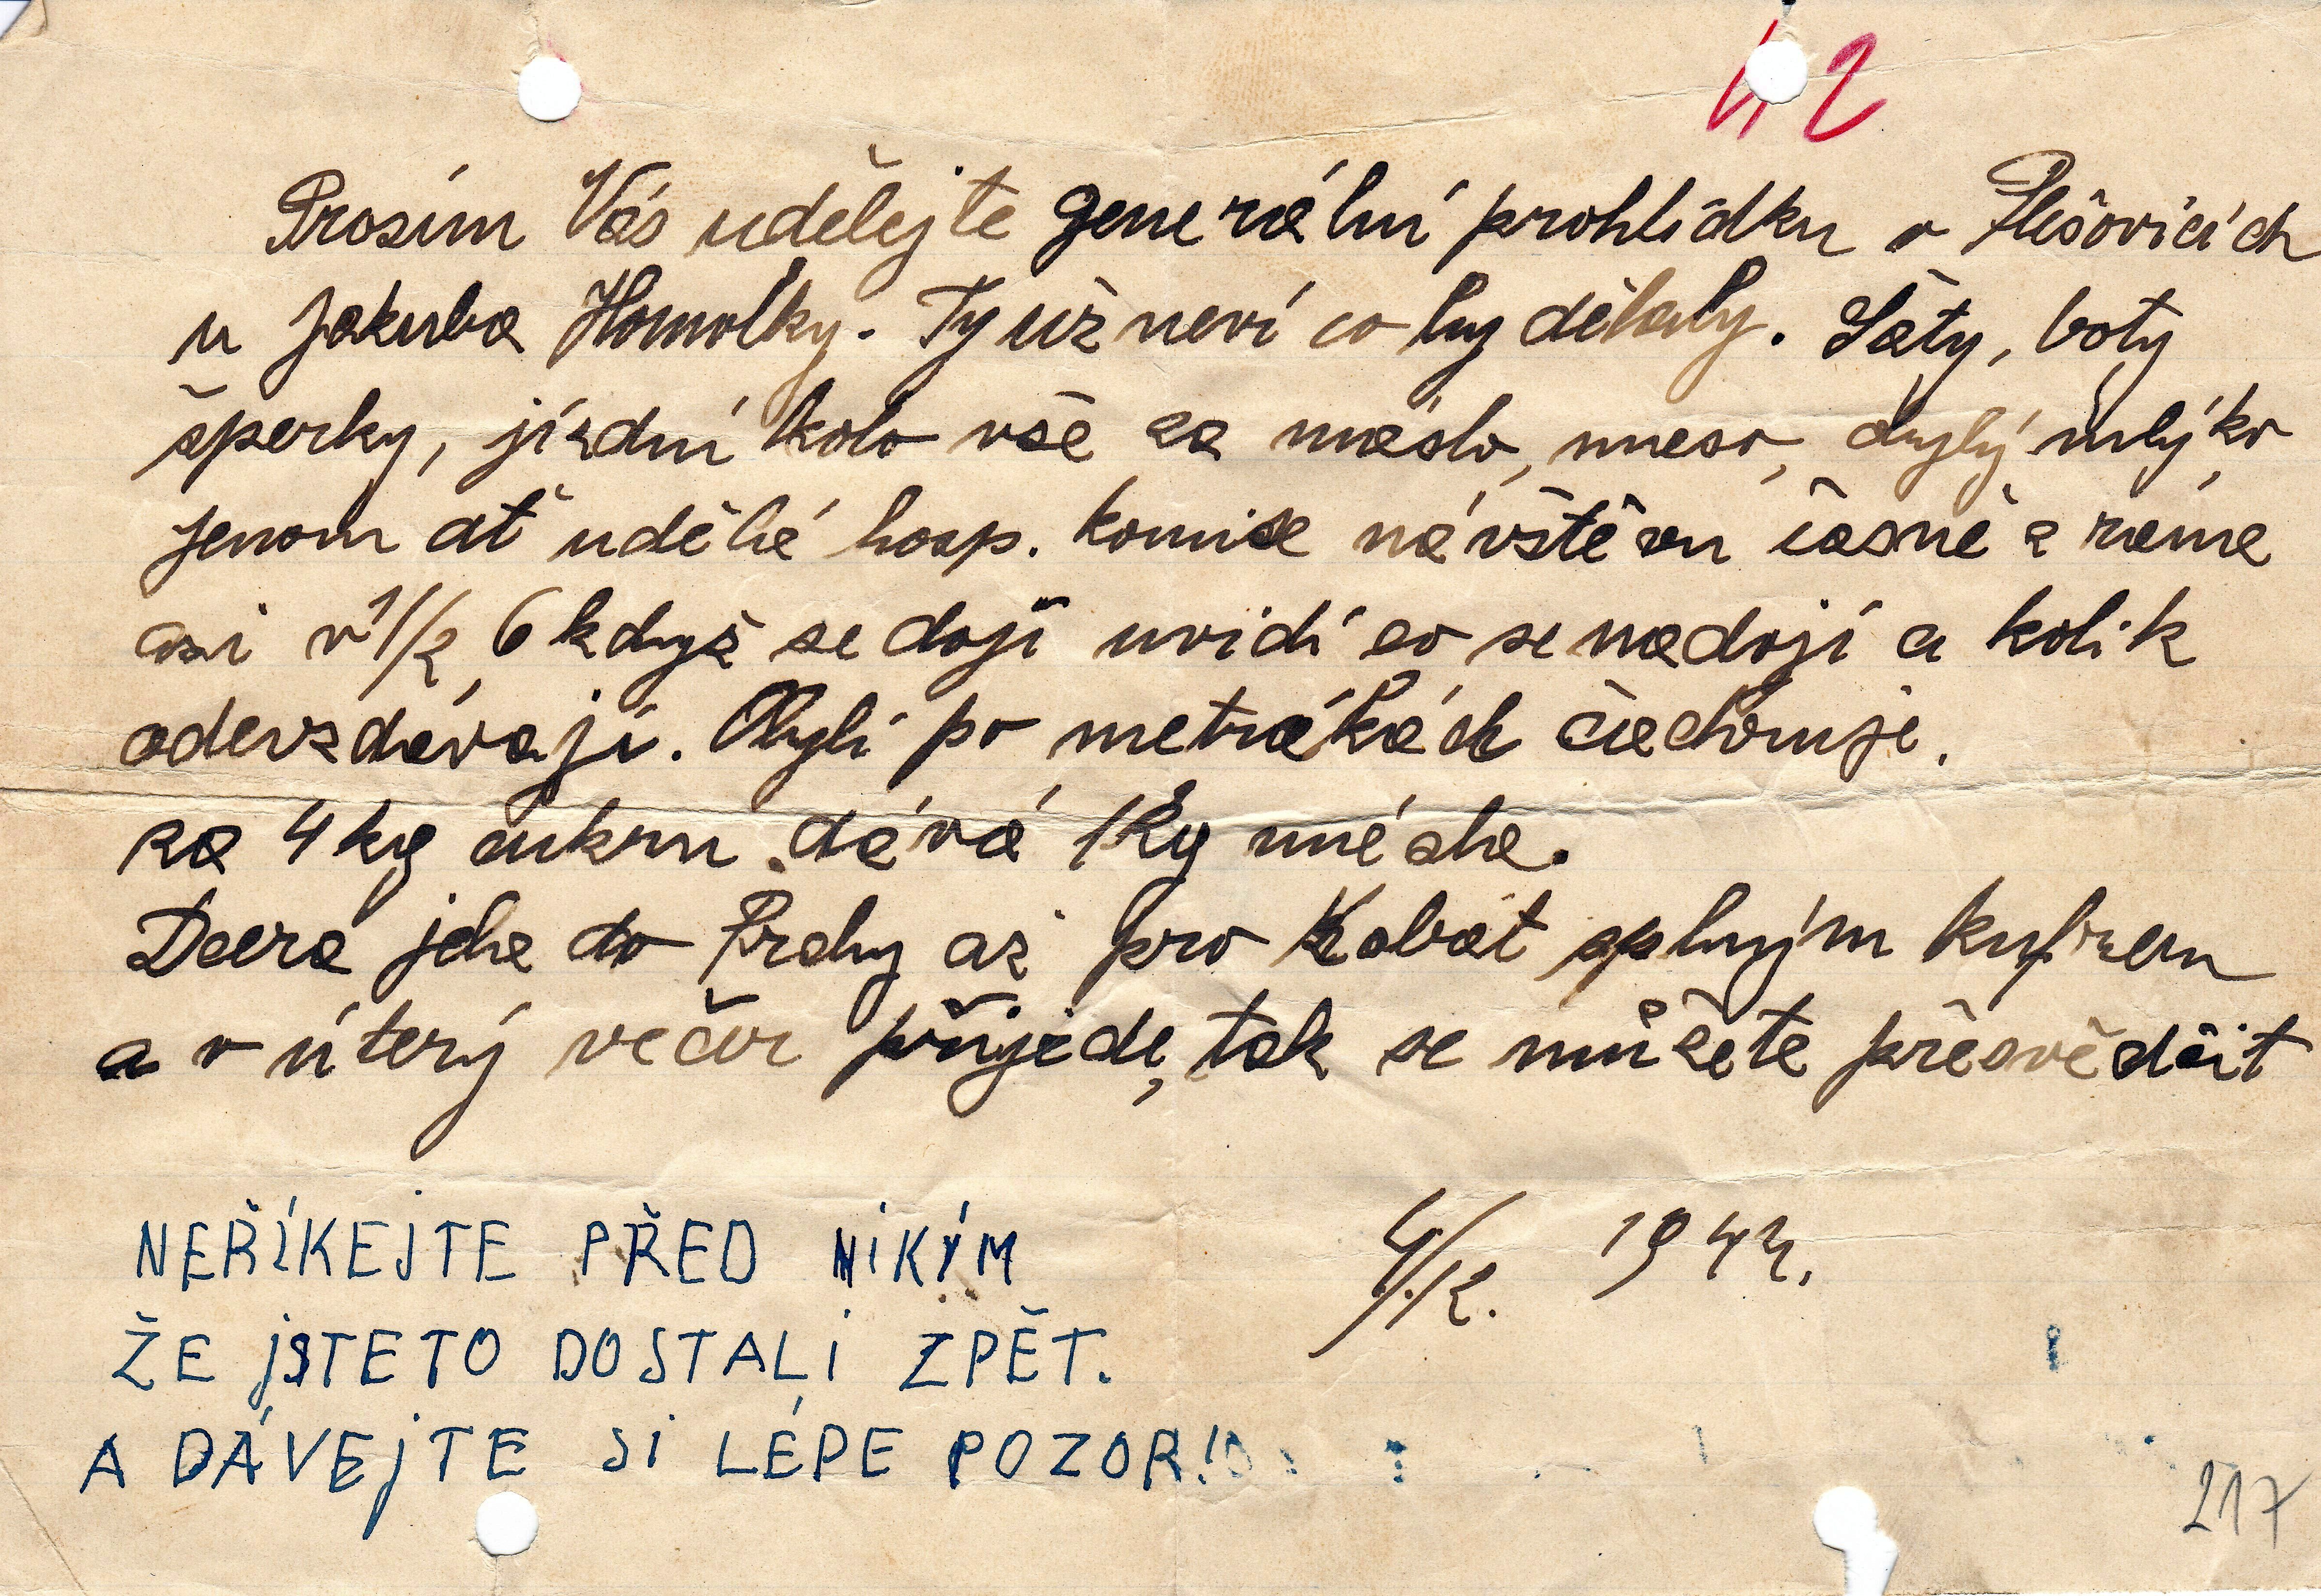 42
Prosím Vás udělejte generální prohlídku v Plešovicích
u Jakuba Homolky. Ty už neví co by dělaly. Šaty, boty
šperky, jízdní kolo vše za máslo, maso, chyby mlýko
jenom ať udělá hosp. komise návštěvu časně z rána
asi v 1/2 6 když se dojí uvidí co se nadojí a kolik
odevzdávají. Obylí po metrákách šachruje.
za 4 kg cukru dává 1 kg másla.
Dcera jela do Prahy až pro kabát splným kufrem
a v úterý večer přijede, tak se můžete přesvědčit
NEŘÍKEJTE PŘED NIKÝM
ŽE JSTETO DOSTALI ZPĚT.
A DÁVEJTE SI LÉPE POZOR!
4/12. 1944.
217